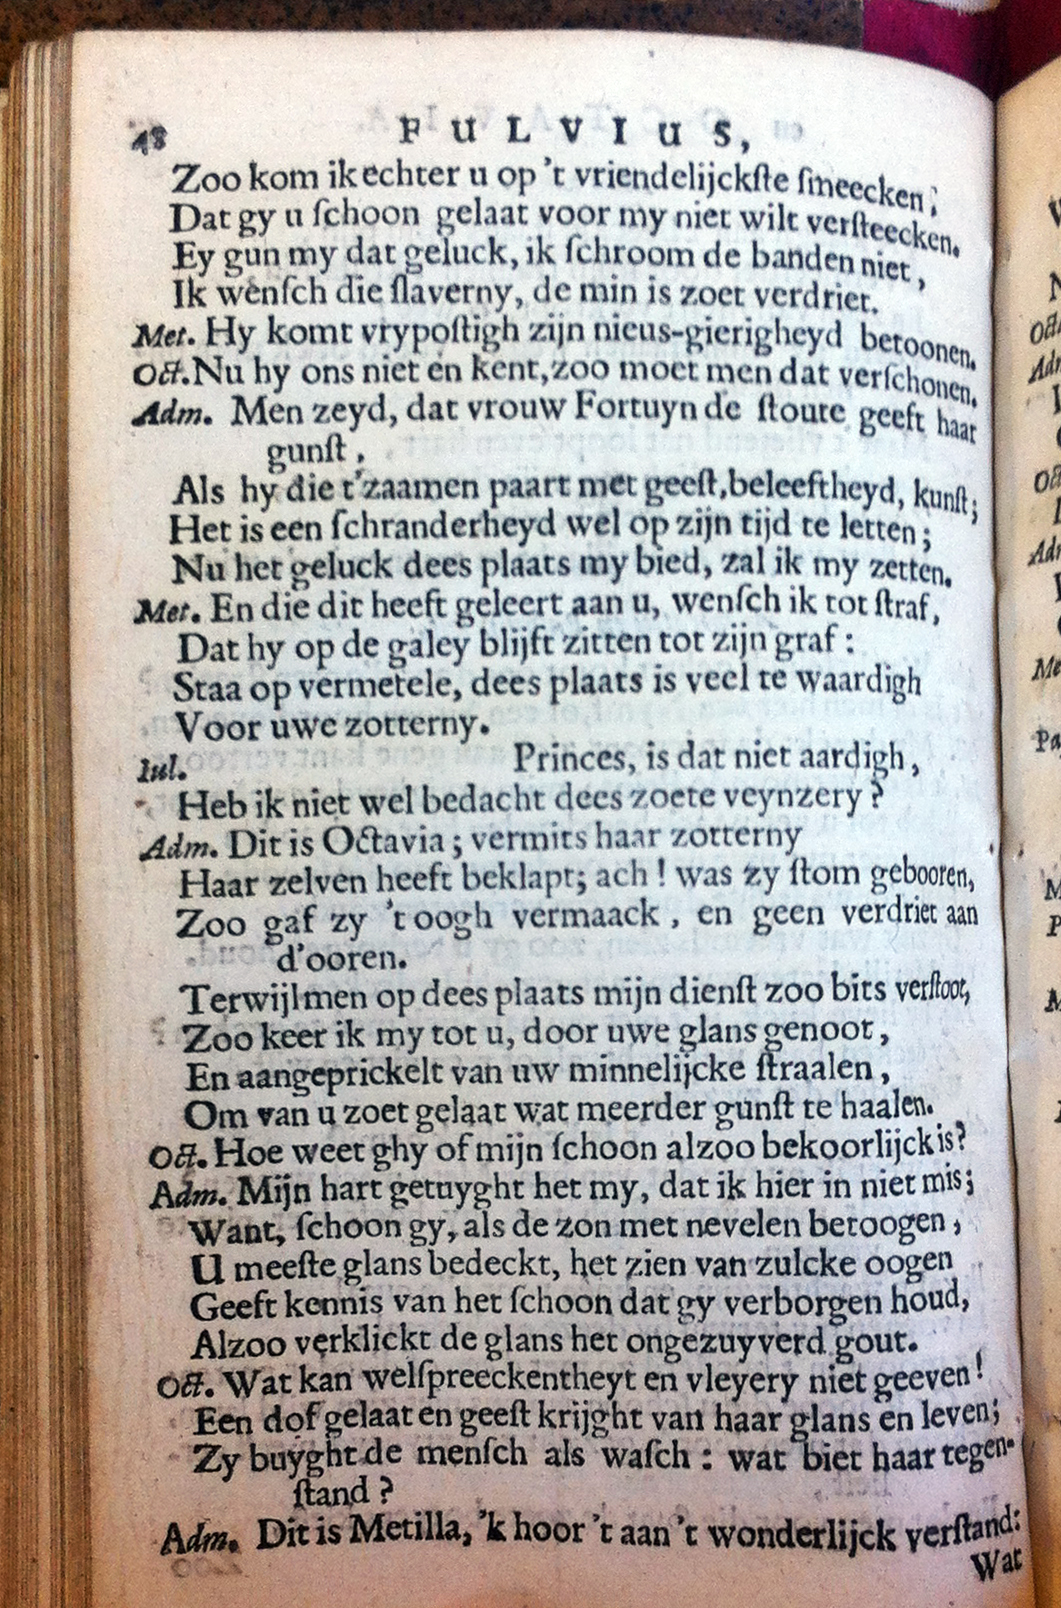 48 FULVIUS,
Zoo kom ik echter u op 't vriendelijckſte ſmeecken;
Dat gy u ſchoon gelaat voor my niet wilt verſteecken.
Ey gun my dat geluck, ik ſchroom de banden niet,
Ik wenſch die ſlaverny, de min is zoet verdriet.
Met. Hy komt vrypoſtigh zijn nieus-gierigheyd betoonen.
Oct. Nu hy ons niet en kent, zoo moet men dat verſchonen.
Adm. Men zeyd, dat vrouw Fortuyn de ſtoute geeft haar
gunſt,
Als hy die t'zaamen paart met geeſt, beleeftheyd, kunſt;
Het is een ſchranderheyd wel op zijn tijd te letten;
Nu het geluck dees plaats my bied, zal ik my zetten.
Met. En die dit heeft geleert aan u, wenſch ik tot ſtraf,
Dat hy op de galey blijft zitten tot zijn graf:
Staa op vermetele, dees plaats is veel te waardigh
Voor uwe zotterny.
Iul. Princes, is dat niet aardigh,
Heb ik niet wel bedacht dees zoete veynzery?
Adm. Dit is Octavia; vermits haar zotterny
Haar zelven heeft beklapt; ach! was zy ſtom gebooren,
Zoo gaf zy 't oogh vermaack, en geen verdriet aan
d'ooren.
Terwijl men op dees plaats mijn dienſt zoo bits verſtoot,
Zoo keer ik my tot u, door uwe glans genoot,
En aangeprickelt van uw minnelijcke ſtraalen,
Om van u zoet gelaat wat meerder gunſt te haalen.
Oct. Hoe weet ghy of mijn ſchoon alzoo bekoorlijck is?
Adm. Mijn hart getuyght het my, dat ik hier in niet mis;
Want, ſchoon gy, als de zon met nevelen betoogen,
U meeſte glans bedeckt, het zien van zulcke oogen
Geeft kennis van het ſchoon dat gy verborgen houd,
Alzoo verklickt de glans het ongezuyverd gout.
Oct. Wat kan welſpreeckentheyt en vleyery niet geeven!
Een dof gelaat en geeſt krijght van haar glans en leven;
Zy buyght de menſch als waſch: wat biet haar tegen-
ſtand?
Adm. Dit is Metilla, 'k hoor 't aan 't wonderlijck verſtand:
Wat